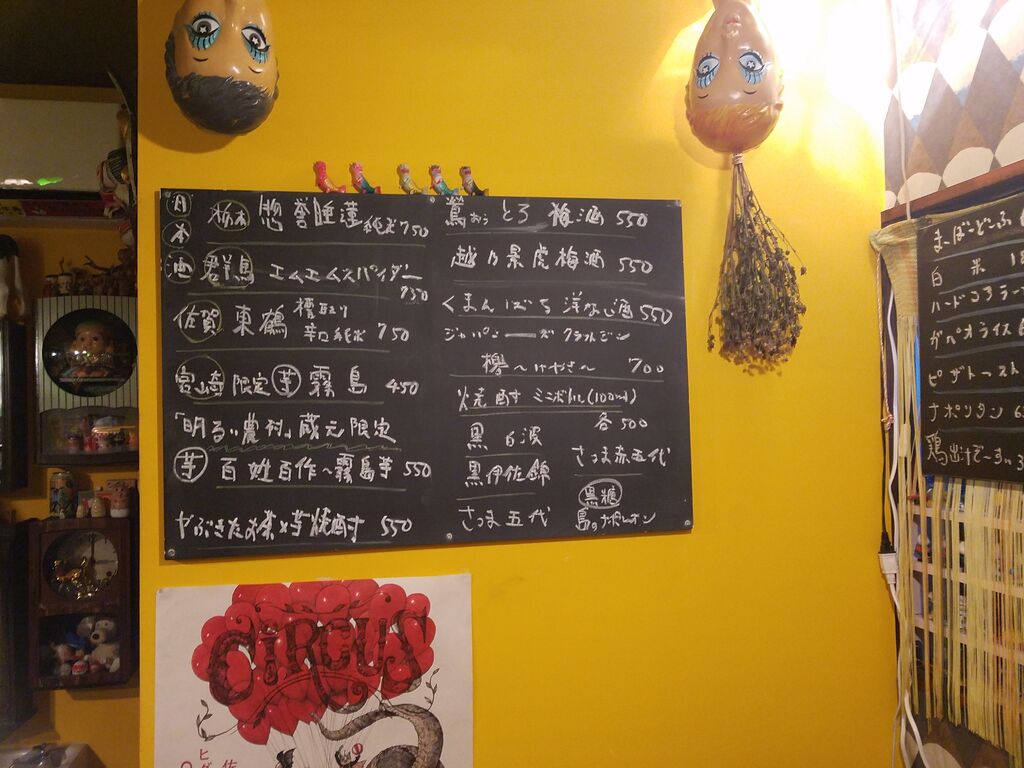 日本酒
栃木 惣誉 睡蓮 純米 750
群馬 エムエムスパイダー 750
佐賀 東鶴 槽取り 辛口純米 750
宮崎 限定 芋 霧島 450
「明るい農村」蔵元限定
芋 百姓百作〜霧島芋 550
やぶきたお茶×芋焼酎 550
鶯おう とろ 梅酒 550
越乃景虎梅酒 550
くまんばち 洋なし酒 550
ジャパニーズクラフトジン
欅〜けやき〜 700
焼酎 ミニボトル(100ml)
各500
黒白波
さつま赤五代
黒伊佐錦
黒糖
さつま五代
島のナポレオン
まーぼーどーふ
白米
ガパオライス
ピザトースト
ナポリタン
CIRCUS